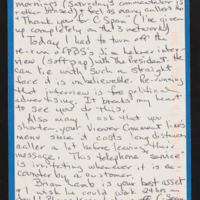 mornings (Saturday's commentator is
rather biased) but many callers say
"Thank you for C Span" (I've given
up completely on the 3 networks)
Today I had to turn off the
re-run of PBS's Jim Lehrer inter-
view (softpap) with the President. He
can lie with such a straight
face it is unbelievable. Re-running
that interview is free political
advertising. It breaks my heart
to see you do this.
Also may I ask that you
shorten your Viewer Comment lines
menu since it costs long distance
caller a lot before leaving their
message. This telephone service
is irritating wherever it is en-
counter by a customer.
Brian Lamb is your best asset
I wish he could work 24 hrs an